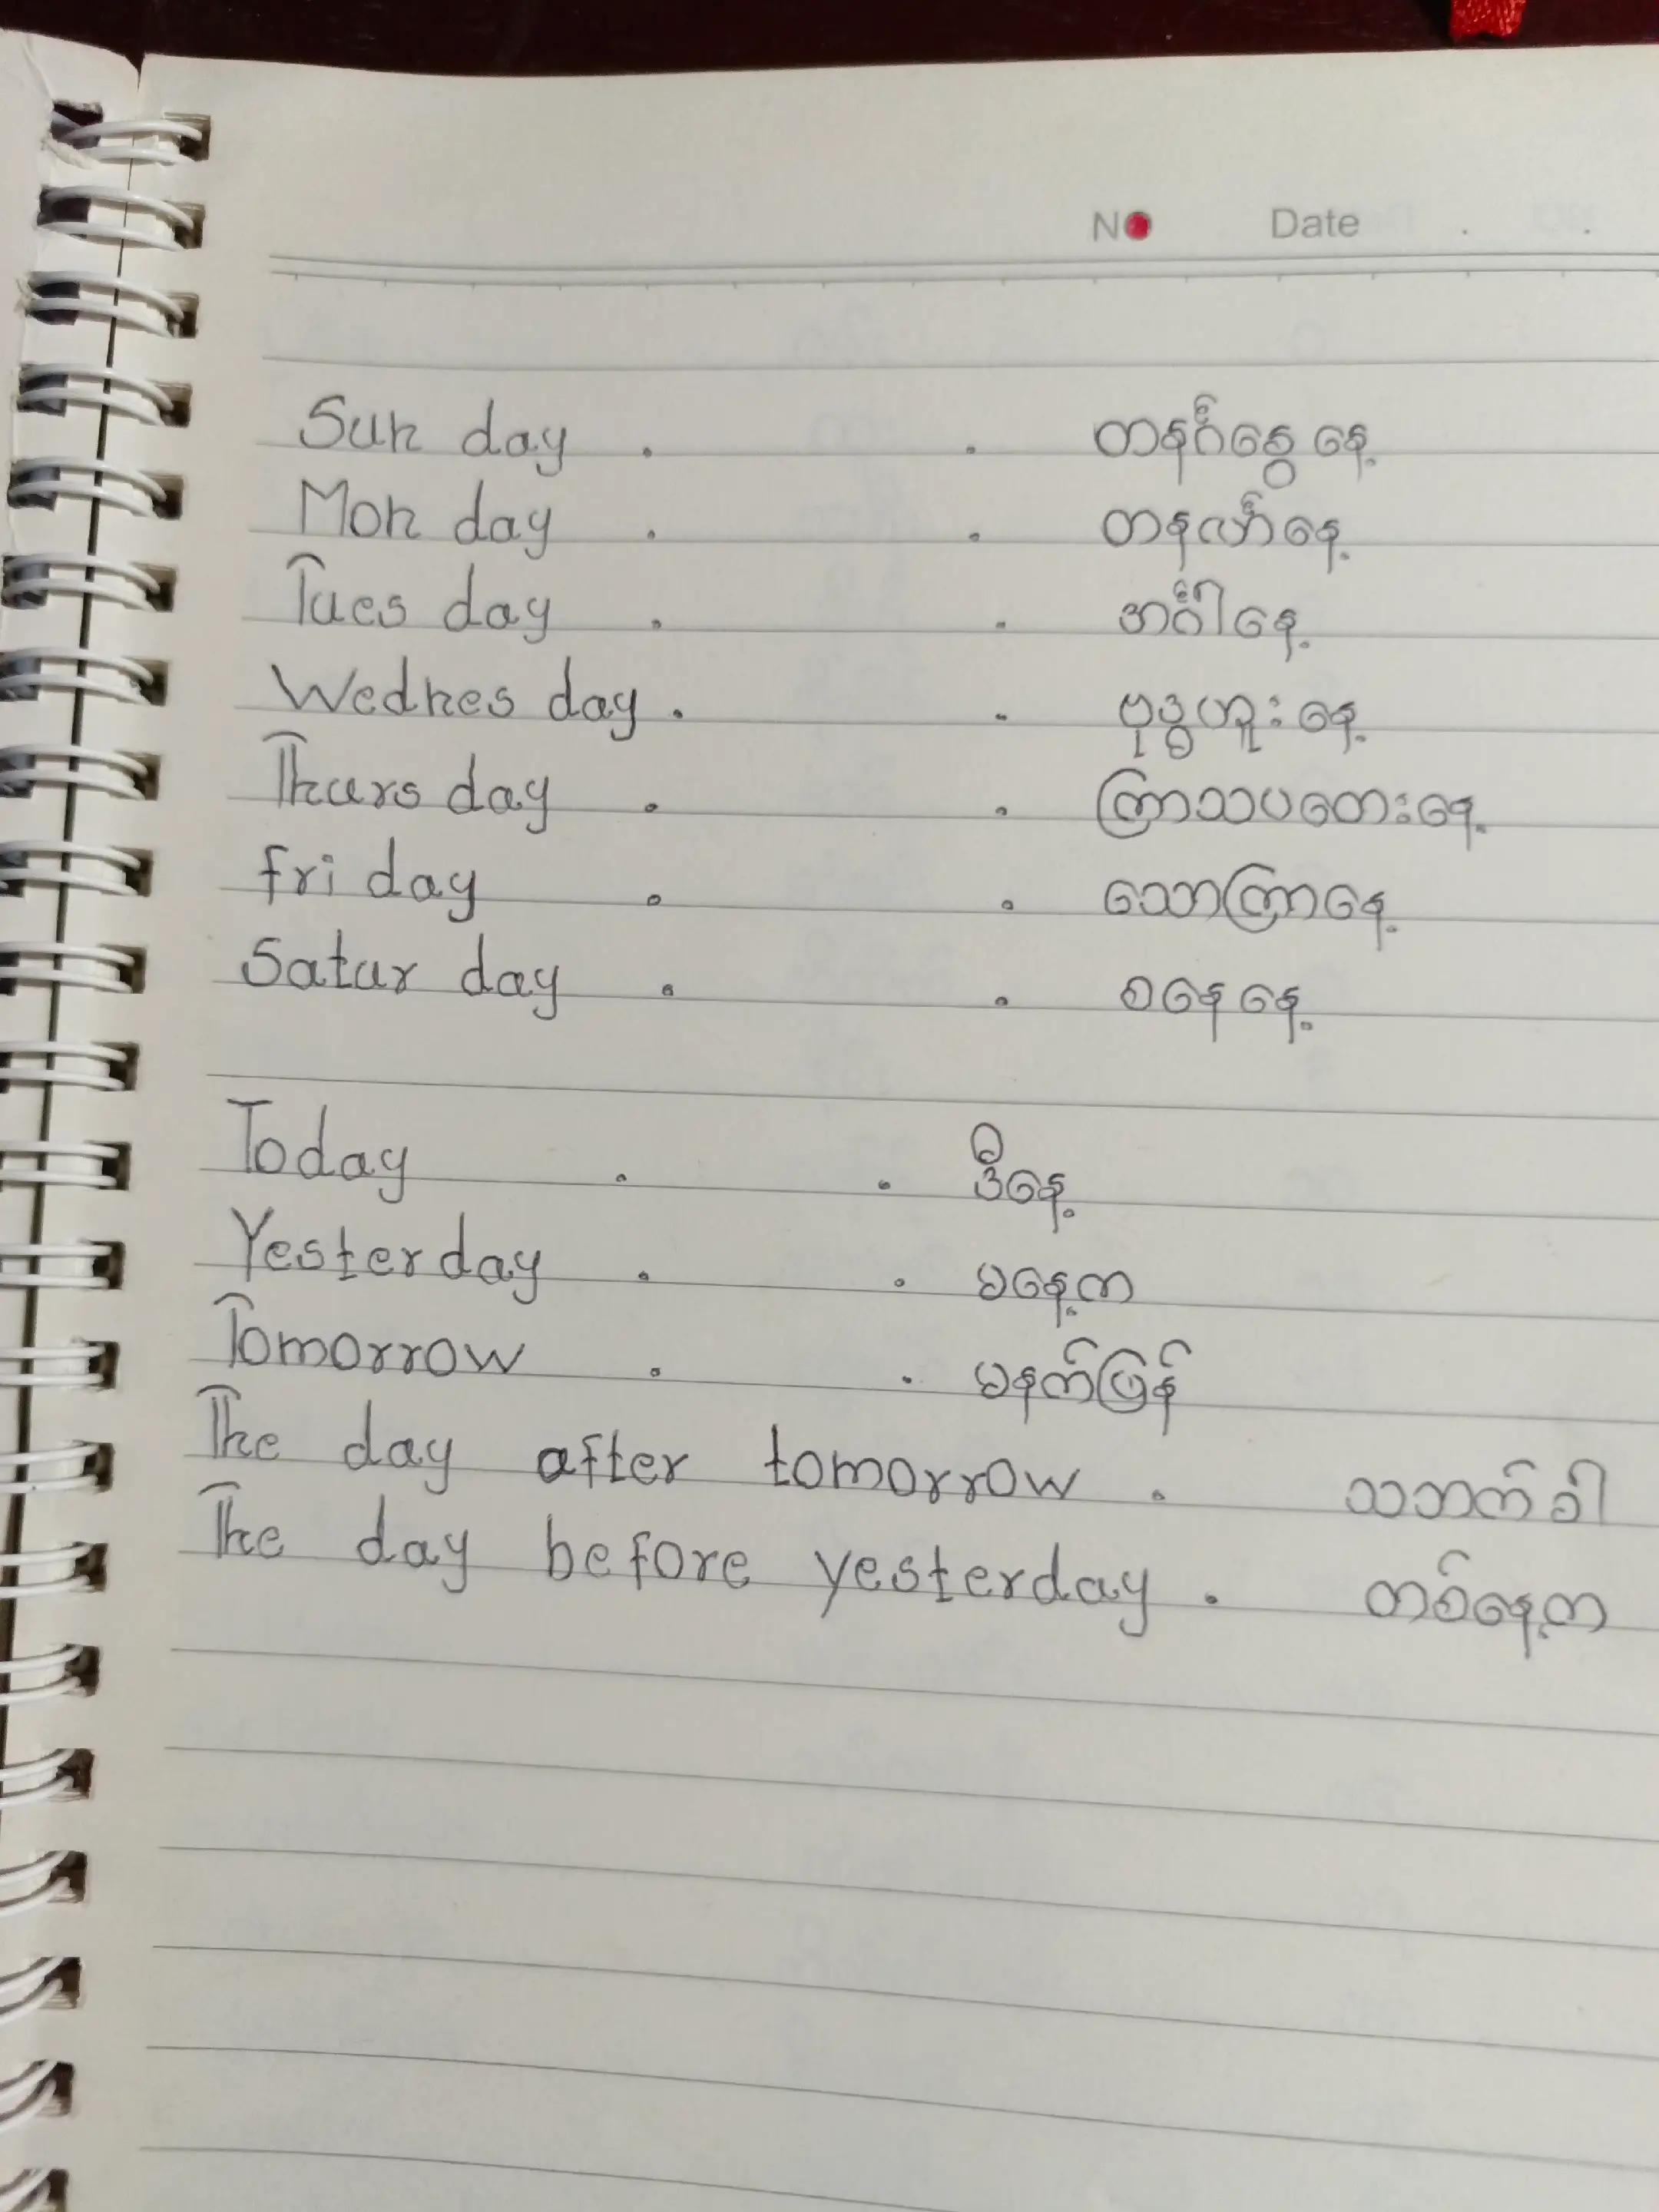 NO Date . .
Sun day . . တနင်္ဂနွေ နေ့
Mon day . . တနင်္လာနေ့
Tues day . . အင်္ဂါနေ့
Wednes day . . ဗုဒ္ဓဟူးနေ့
Thurs day . . ကြာသပတေးနေ့
fri day . . သောကြာနေ့
Satur day . . စနေနေ့
Today . . ဒီနေ့
Yesterday . . မနေ့က
Tomorrow . . မနက်ဖြန်
The day after tomorrow . သဘက်ခါ
The day before yesterday . တစ်နေ့က